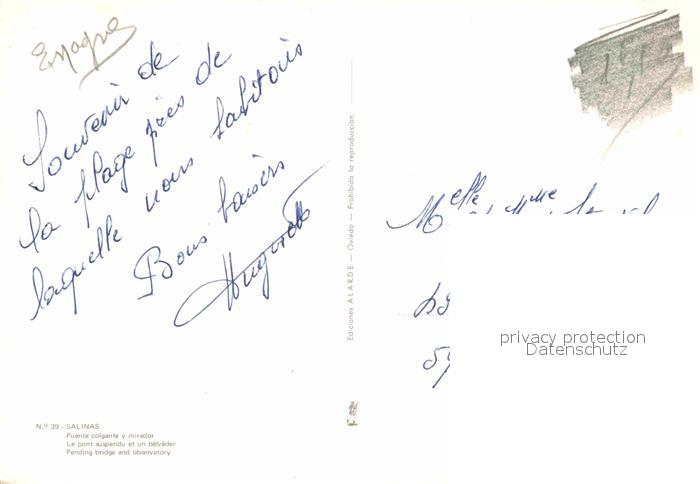 Espagne
Souvenir de
la plage près de
laquelle nous habitons
Bons baisers
Huguette
Nº 39 - SALINAS
Puente colgante y mirador
Le pont suspendu et un bélvéder
Pending bridge and observatory
Ediciones ALARDE — Oviedo — Prohibida la reproducción
Melle
privacy protection
Datenschutz